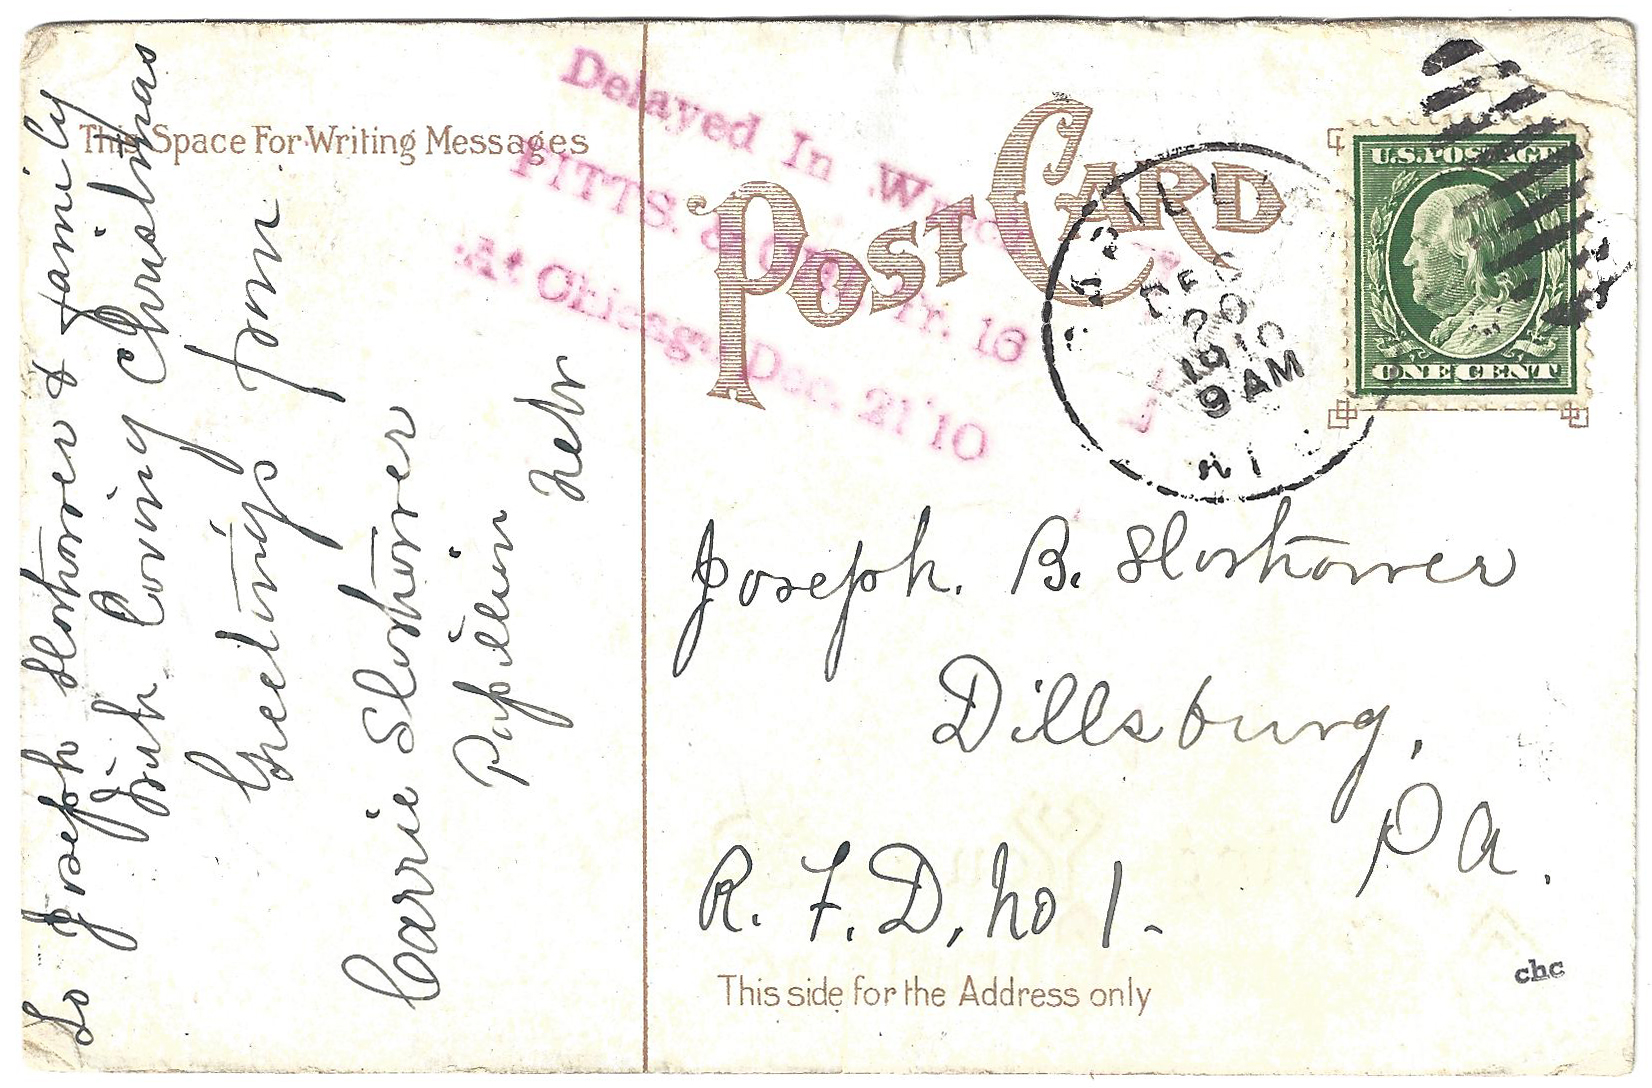 This Space For Writing Messages
To Joseph Sloshower & family
Wish Loving Christmas
Greetings from
Carrie Sloshower
Papillion
Nebr
Delayed In Wreck
PITTS. & Tr. 16
At Chicago Dec. 21 '10
POST CARD
DEC
20
1910
9 AM
U.S. POSTAGE
ONE CENT
Joseph. B. Sloshower
Dillsburg,
Pa.
R. F. D, No 1-
This side for the Address only
chc